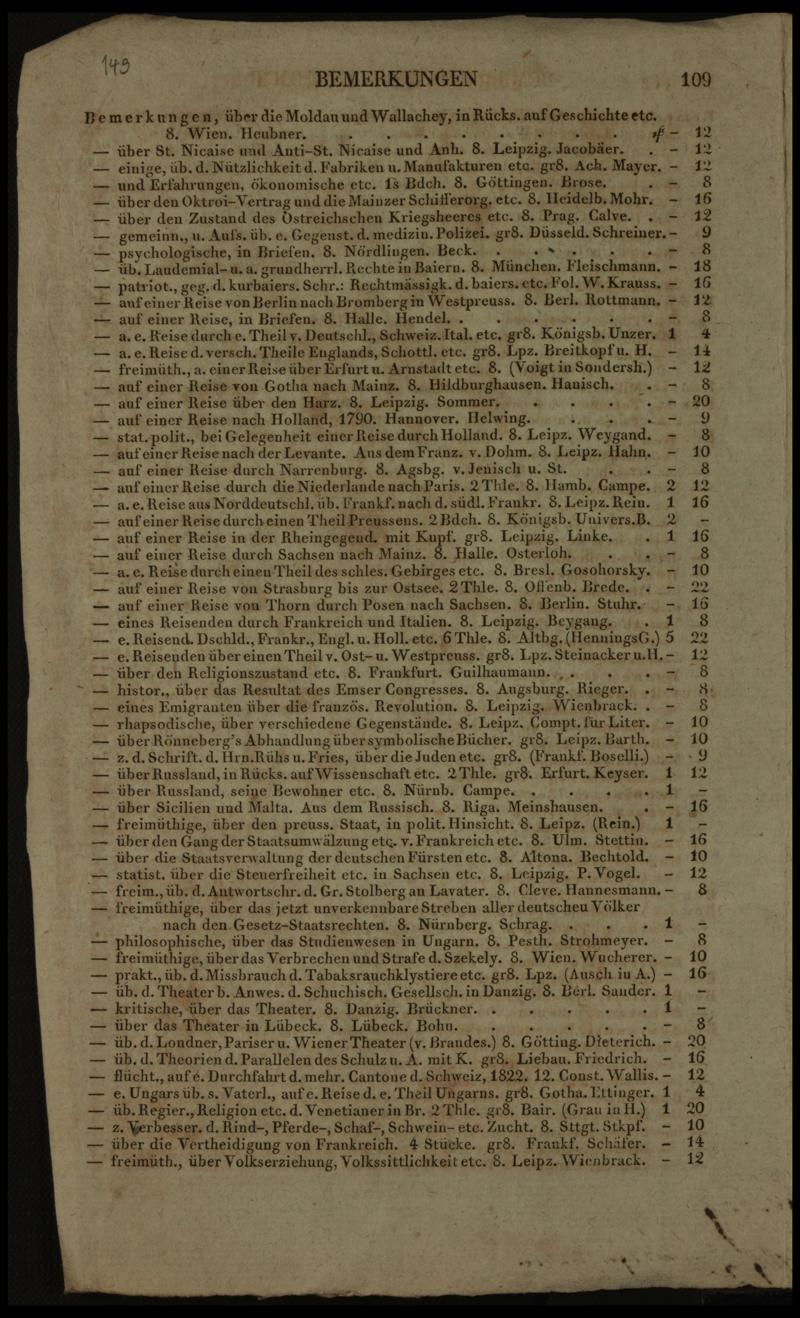 149
BEMERKUNGEN 109
Bemerkungen, über die Moldau und Wallachey, in Rücks. auf Geschichte etc.
8. Wien. Heubner. . . . . . . . . – 12
— über St. Nicaise und Anti-St. Nicaise und Anh. 8. Leipzig. Jacobäer. . – 12
— einige, üb. d. Nützlichkeit d. Fabriken u. Manufakturen etc. gr8. Ach. Mayer. – 12
— und Erfahrungen, ökonomische etc. 1s Bdch. 8. Göttingen. Brose. . – 8
— über den Oktroi-Vertrag und die Mainzer Schifferorg. etc. 8. Heidelb. Mohr. – 16
— über den Zustand des Östreichschen Kriegsheeres etc. 8. Prag. Calve. . – 12
— gemeinn., u. Aufs. üb. e. Gegenst. d. medizin. Polizei. gr8. Düsseld. Schreiner. – 9
— psychologische, in Briefen. 8. Nördlingen. Beck. . . . . . – 8
— üb. Laudemial- u. a. grundherrl. Rechte in Baiern. 8. München. Fleischmann. – 18
— patriot., geg. d. kurbaiers. Schr.: Rechtmässigk. d. baiers. etc. Fol. W. Krauss. – 16
— auf einer Reise von Berlin nach Bromberg in Westpreuss. 8. Berl. Rottmann. – 12
— auf einer Reise, in Briefen. 8. Halle. Hendel. . . . . . . – 8
— a. e. Reise durch e. Theil v. Deutschl., Schweiz. Ital. etc. gr8. Königsb. Unzer. 1 4
— a. e. Reise d. versch. Theile Englands, Schottl. etc. gr8. Lpz. Breitkopf u. H. – 14
— freimüth., a. einer Reise über Erfurt u. Arnstadt etc. 8. (Voigt in Sondersh.) – 12
— auf einer Reise von Gotha nach Mainz. 8. Hildburghausen. Hanisch. . – 8
— auf einer Reise über den Harz. 8. Leipzig. Sommer. . . . . – 20
— auf einer Reise nach Holland, 1790. Hannover. Helwing. . . . – 9
— stat. polit., bei Gelegenheit einer Reise durch Holland. 8. Leipz. Weygand. – 8
— auf einer Reise nach der Levante. Aus dem Franz. v. Dohm. 8. Leipz. Hahn. – 10
— auf einer Reise durch Narrenburg. 8. Agsbg. v. Jenisch u. St. . . – 8
— auf einer Reise durch die Niederlande nach Paris. 2 Thle. 8. Hamb. Campe. 2 12
— a. e. Reise aus Norddeutschl. üb. Frankf. nach d. südl. Frankr. 8. Leipz. Rein. 1 16
— auf einer Reise durch einen Theil Preussens. 2 Bdch. 8. Königsb. Univers.B. 2 –
— auf einer Reise in der Rheingegend. mit Kupf. gr8. Leipzig. Linke. . 1 16
— auf einer Reise durch Sachsen nach Mainz. 8. Halle. Osterloh. . . – 8
— a. e. Reise durch einen Theil des schles. Gebirges etc. 8. Bresl. Gosohorsky. – 10
— auf einer Reise von Strasburg bis zur Ostsee. 2 Thle. 8. Offenb. Brede. . – 22
— auf einer Reise von Thorn durch Posen nach Sachsen. 8. Berlin. Stuhr. – 16
— eines Reisenden durch Frankreich und Italien. 8. Leipzig. Beygang. . 1 8
— e. Reisend. Dschld., Frankr., Engl. u. Holl. etc. 6 Thle. 8. Altbg. (Hennings G.) 5 22
— e. Reisenden über einen Theil v. Ost- u. Westpreuss. gr8. Lpz. Steinacker u. H. – 12
— über den Religionszustand etc. 8. Frankfurt. Guilhaumann. . . . – 8
— histor., über das Resultat des Emser Congresses. 8. Augsburg. Rieger. . – 8
— eines Emigranten über die französ. Revolution. 8. Leipzig. Wienbrack. . – 8
— rhapsodische, über verschiedene Gegenstände. 8. Leipz. Compt. für Liter. – 10
— über Rönneberg's Abhandlung über symbolische Bücher. gr8. Leipz. Barth. – 10
— z. d. Schrift. d. Hrn. Rühs u. Fries, über die Juden etc. gr8. (Frankf. Boselli.) – 9
— über Russland, in Rücks. auf Wissenschaft etc. 2 Thle. gr8. Erfurt. Keyser. 1 12
— über Russland, seine Bewohner etc. 8. Nürnb. Campe. . . . . 1 –
— über Sicilien und Malta. Aus dem Russisch. 8. Riga. Meinshausen. . – 16
— freimüthige, über den preuss. Staat, in polit. Hinsicht. 8. Leipz. (Rein.) 1 –
— über den Gang der Staatsumwälzung etc. v. Frankreich etc. 8. Ulm. Stettin. – 16
— über die Staatsverwaltung der deutschen Fürsten etc. 8. Altona. Bechtold. – 10
— statist. über die Steuerfreiheit etc. in Sachsen etc. 8. Leipzig. P. Vogel. – 12
— freim., üb. d. Antwortschr. d. Gr. Stolberg an Lavater. 8. Cleve. Hannesmann. – 8
— freimüthige, über das jetzt unverkennbare Streben aller deutscheu Völker
nach den Gesetz-Staatsrechten. 8. Nürnberg. Schrag. . . . 1 –
— philosophische, über das Studienwesen in Ungarn. 8. Pesth. Strohmeyer. – 8
— freimüthige, über das Verbrechen und Strafe d. Szekely. 8. Wien. Wucherer. – 10
— prakt., üb. d. Missbrauch d. Tabaksrauchklystiere etc. gr8. Lpz. (Ausch iu A.) – 16
— üb. d. Theater b. Anwes. d. Schuchisch. Gesellsch. in Danzig. 8. Berl. Sander. 1 –
— kritische, über das Theater. 8. Danzig. Brückner. . . . . . 1 –
— über das Theater in Lübeck. 8. Lübeck. Bohn. . . . . . – 8
— üb. d. Londner, Pariser u. Wiener Theater (v. Brandes.) 8. Götting. Dieterich. – 20
— üb. d. Theorien d. Parallelen des Schulz u. A. mit K. gr8. Liebau. Friedrich. – 16
— flücht., auf e. Durchfahrt d. mehr. Cantone d. Schweiz, 1822. 12. Const. Wallis. – 12
— e. Ungars üb. s. Vaterl., auf e. Reise d. e. Theil Ungarns. gr8. Gotha. Ettinger. 1 4
— üb. Regier., Religion etc. d. Venetianer in Br. 2 Thle. gr8. Bair. (Grau in H.) 1 20
— z. Verbesser. d. Rind-, Pferde-, Schaf-, Schwein- etc. Zucht. 8. Sttgt. Stkpf. – 10
— über die Vertheidigung von Frankreich. 4 Stücke. gr8. Frankf. Schäfer. – 14
— freimüth., über Volkserziehung, Volkssittlichkeit etc. 8. Leipz. Wienbrack. – 12